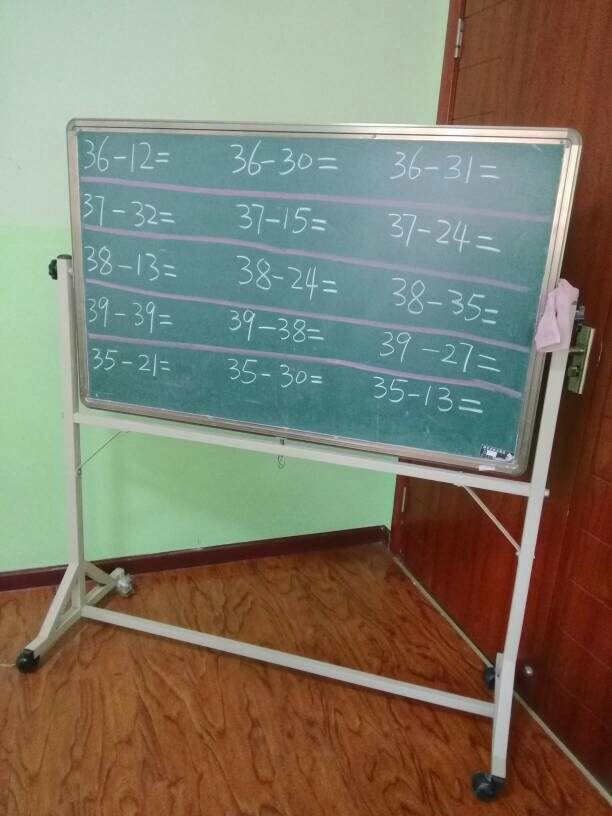 36-12= 36-30= 36-31=
37-32= 37-15= 37-24=
38-13= 38-24= 38-35=
39-39= 39-38= 39-27=
35-21= 35-30= 35-13=